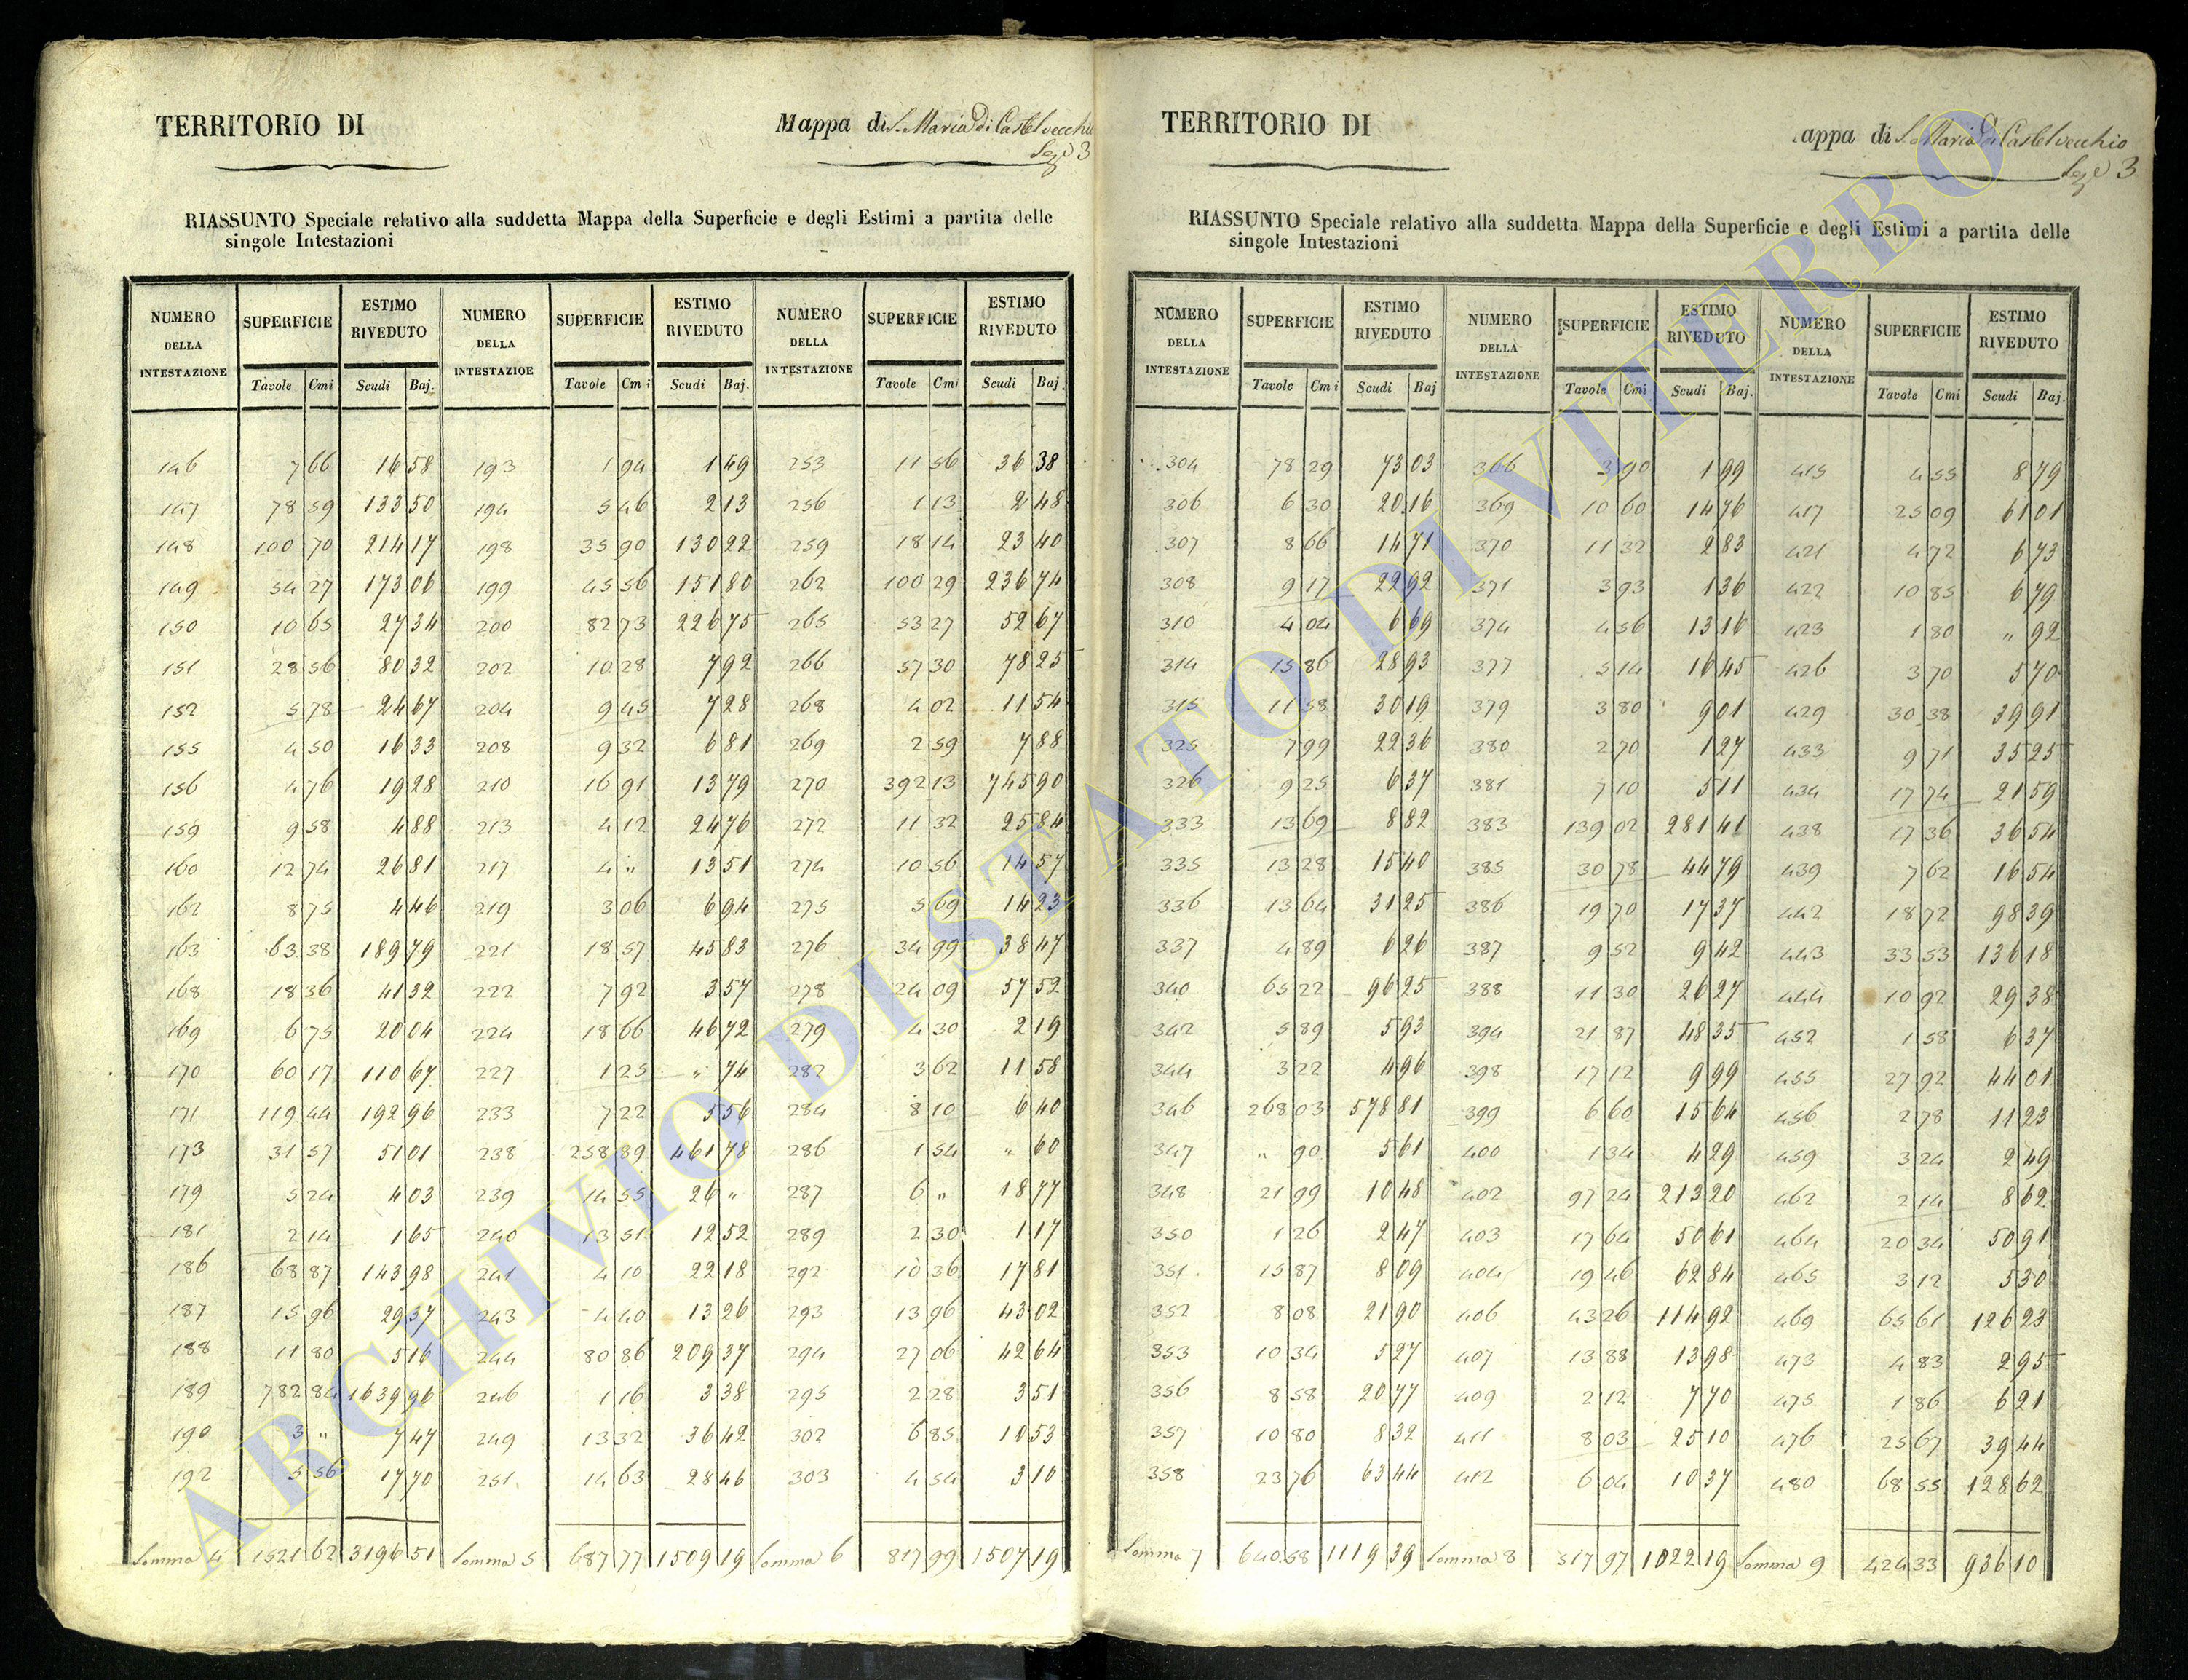 TERRITORIO DI
Mappa di S. Maria di Castelvecchio
Sez.e 3
RIASSUNTO Speciale relativo alla suddetta Mappa della Superficie e degli Estimi a partita delle
singole Intestazioni
NUMERO DELLA INTESTAZIONE SUPERFICIE ESTIMO RIVEDUTO NUMERO DELLA INTESTAZIOE SUPERFICIE ESTIMO RIVEDUTO NUMERO DELLA INTESTAZIONE SUPERFICIE ESTIMO RIVEDUTO
Tavole Cmi Scudi Baj. Tavole Cmi Scudi Baj. Tavole Cmi Scudi Baj.
146 7 66 16 58 193 1 94 1 49 253 11 56 36 38
147 78 59 133 50 194 5 46 2 13 256 1 13 2 48
148 100 70 214 17 198 35 90 130 22 259 18 14 23 40
149 54 27 173 06 199 45 56 151 80 262 100 29 236 74
150 10 65 27 34 200 82 73 226 75 265 53 27 52 67
151 28 56 80 32 202 10 28 7 92 266 57 30 78 25
152 5 78 24 67 204 9 45 7 28 268 4 02 11 54
155 4 50 16 33 208 9 32 6 81 269 2 59 7 88
156 4 76 19 28 210 16 91 13 79 270 392 13 745 90
159 9 58 4 88 213 4 12 24 76 272 11 32 25 84
160 12 74 26 81 217 4 " 13 51 274 10 56 14 57
162 8 75 4 46 219 3 06 6 94 275 5 69 14 23
163 63 38 189 79 221 18 57 45 83 276 34 99 38 47
168 18 36 41 32 222 7 92 3 57 278 24 09 57 52
169 6 75 20 04 224 18 66 46 72 279 4 30 2 19
170 60 17 110 67 227 1 25 " 74 282 3 62 11 58
171 119 44 192 96 233 7 22 5 56 284 8 10 6 40
173 31 57 51 01 238 258 89 461 78 286 1 54 " 60
179 5 24 4 03 239 14 55 26 " 287 6 " 18 77
181 2 14 1 65 240 13 51 12 52 289 2 30 1 17
186 68 87 143 98 241 4 10 22 18 292 10 36 17 81
187 15 96 29 37 243 4 40 13 26 293 13 96 43 02
188 11 80 5 16 244 80 86 209 37 294 27 06 42 64
189 782 84 1639 96 246 1 16 3 38 295 2 28 3 51
190 3 " 7 47 249 13 32 36 42 302 6 85 10 53
192 5 56 17 70 251 14 63 28 46 303 4 54 3 10
Somma 4 1521 62 3196 51 Somma 5 687 77 1509 19 Somma 6 817 99 1507 19
TERRITORIO DI
appa di S. Maria di Castelvecchio
Sez.e 3
RIASSUNTO Speciale relativo alla suddetta Mappa della Superficie e degli Estimi a partita delle
singole Intestazioni
NUMERO DELLA INTESTAZIONE SUPERFICIE ESTIMO RIVEDUTO NUMERO DELLA INTESTAZIONE SUPERFICIE ESTIMO RIVEDUTO NUMERO DELLA INTESTAZIONE SUPERFICIE ESTIMO RIVEDUTO
Tavole Cmi Scudi Baj Tavole Cmi Scudi Baj. Tavole Cmi Scudi Baj.
304 78 29 73 03 366 3 90 1 99 415 4 55 8 79
306 6 30 20 16 369 10 60 14 76 417 25 09 61 01
307 8 66 14 71 370 11 32 2 83 421 4 72 6 73
308 9 17 22 92 371 3 93 1 36 422 10 85 6 79
310 4 04 6 69 374 4 56 13 16 423 1 80 " 92
314 15 86 28 93 377 5 14 16 45 426 3 70 5 70
315 11 58 30 19 379 3 80 9 01 429 30 38 39 91
325 7 99 22 36 380 2 70 1 27 433 9 71 35 25
326 9 25 6 37 381 7 10 5 11 434 17 74 21 59
333 13 69 8 82 383 139 02 281 41 438 17 36 36 54
335 13 28 15 40 385 30 78 44 79 439 7 62 16 54
336 13 64 31 25 386 19 70 17 37 442 18 72 98 39
337 4 89 6 26 387 9 52 9 42 443 33 53 136 18
340 65 22 96 25 388 11 30 26 27 444 10 92 29 38
342 5 89 5 93 394 21 87 48 35 452 1 58 6 37
344 3 22 4 96 398 17 12 9 99 455 27 92 44 01
346 268 03 578 81 399 6 60 15 64 456 2 78 11 23
347 " 90 5 61 400 1 34 4 29 459 3 24 2 49
348 21 99 10 48 402 97 24 213 20 462 2 14 8 62
350 1 26 2 47 403 17 64 50 61 464 20 34 50 91
351 15 87 8 09 404 19 46 62 84 465 3 12 5 30
352 8 08 21 90 406 43 26 114 92 469 65 61 126 23
353 10 34 5 27 407 13 88 13 98 473 4 83 2 95
356 8 58 20 77 409 2 12 7 70 475 1 86 6 21
357 10 80 8 32 411 8 03 25 10 476 25 67 39 44
358 23 76 63 44 412 6 04 10 37 480 68 55 128 62
Somma 7 640 58 1119 39 Somma 8 517 97 1022 19 Somma 9 424 33 936 10
ARCHIVIO DI STATO DI VITERBO